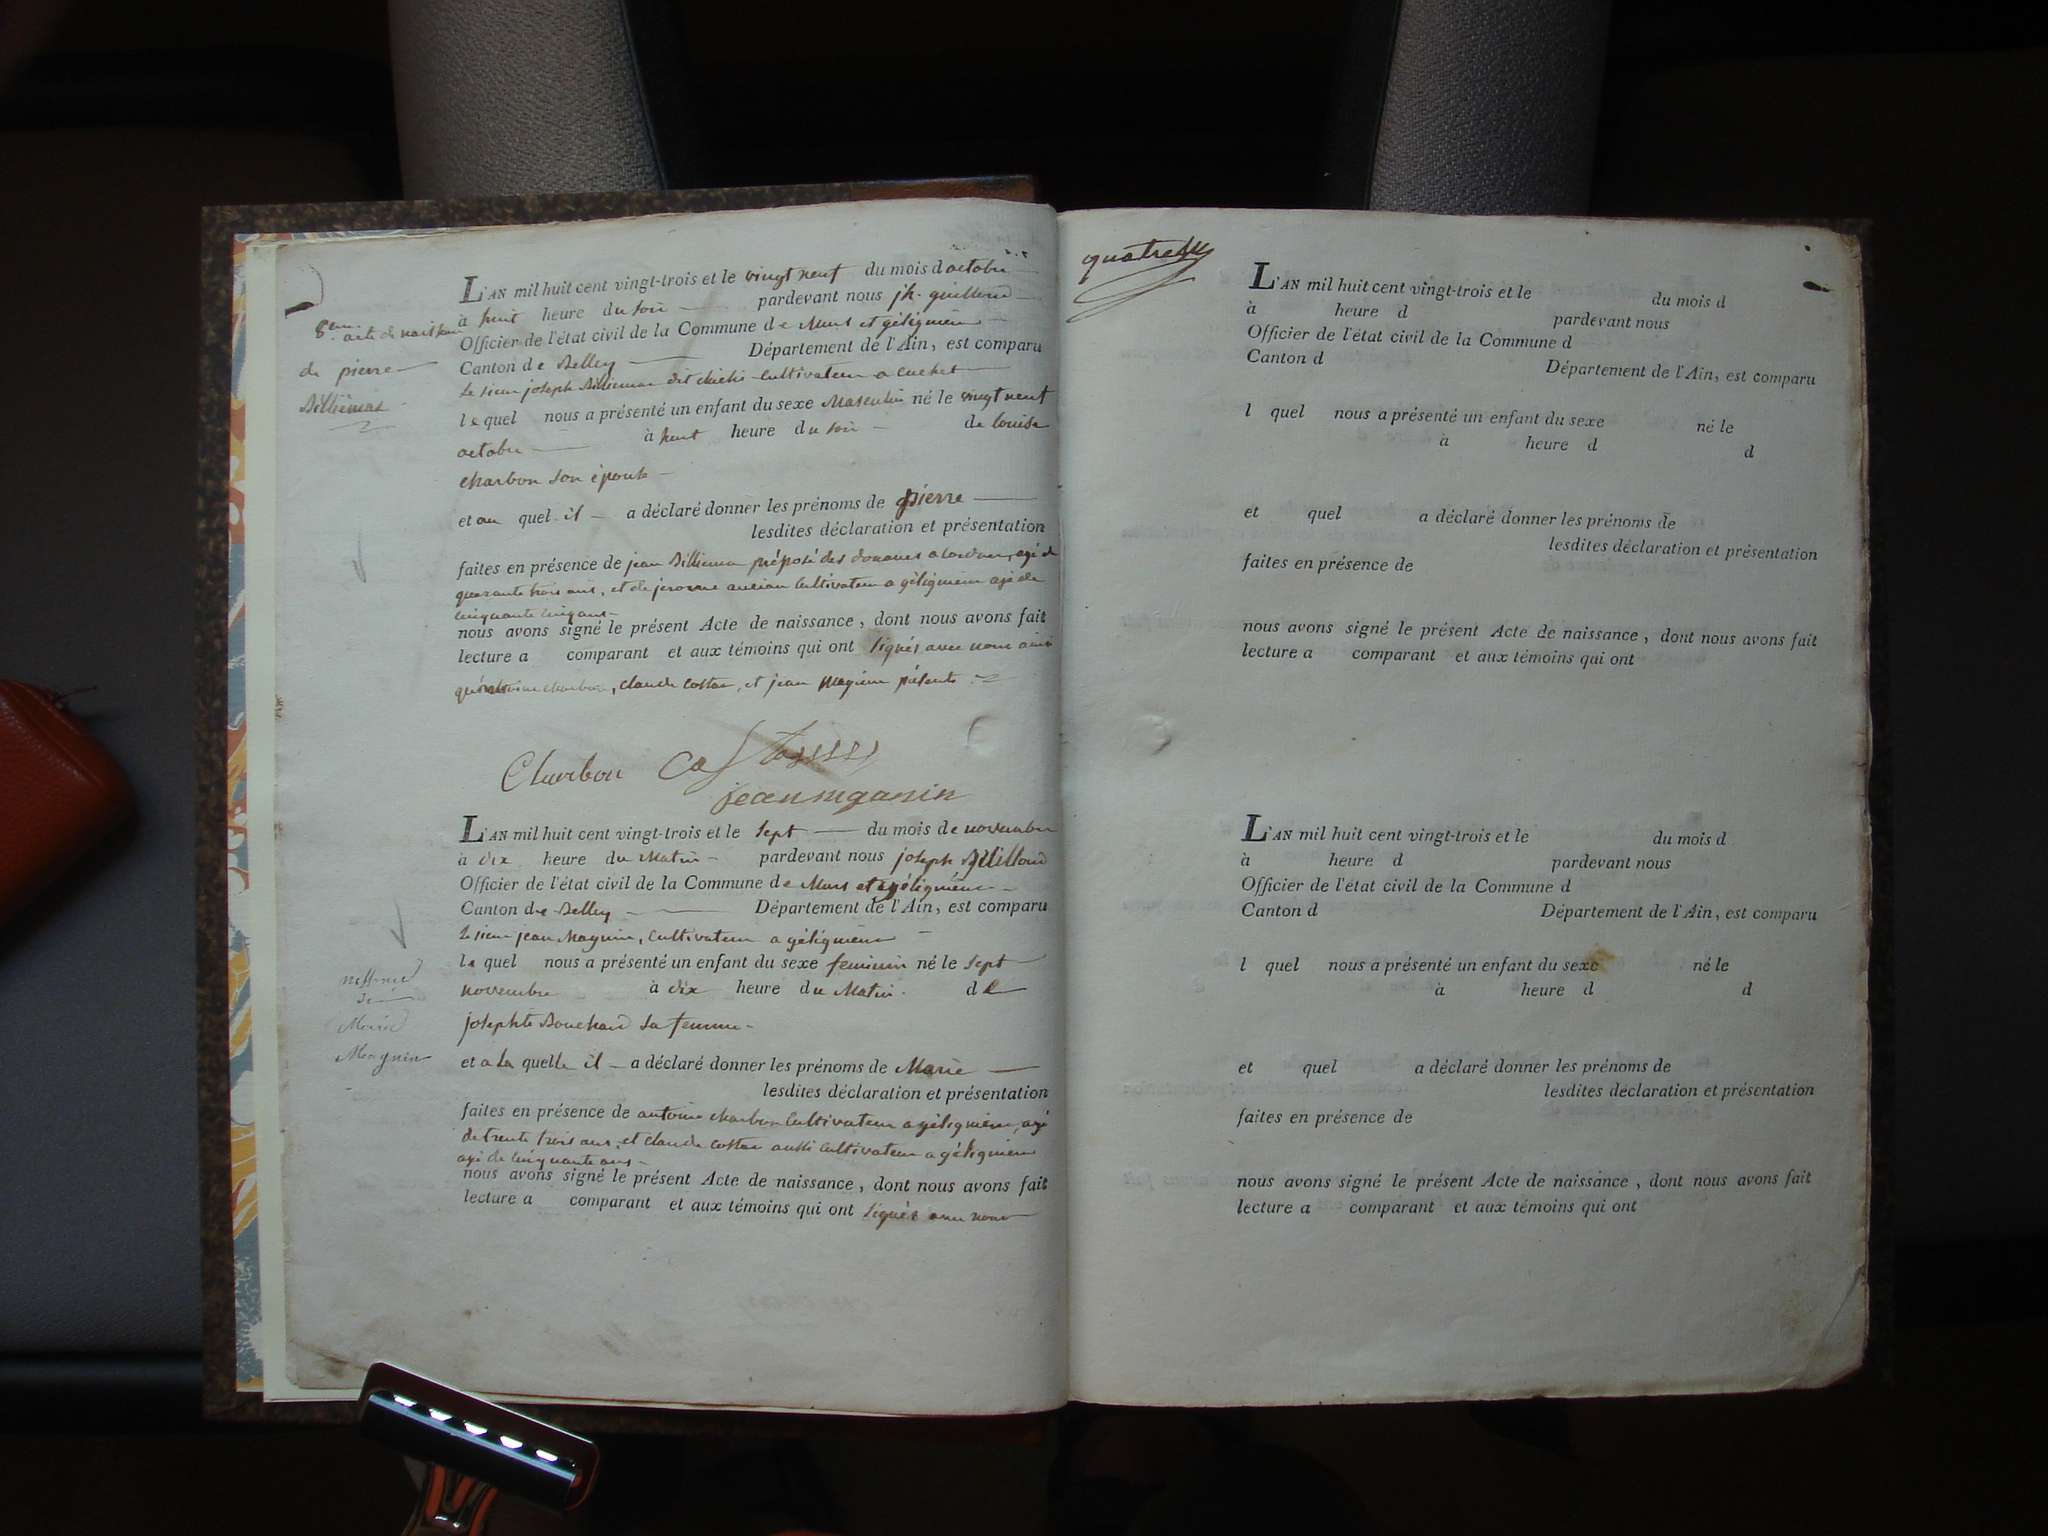 8eme acte de naissance
de pierre
Billiémas
L'AN mil huit cent vingt-trois et le vingt neuf du mois d octobre
à huit heure du soir pardevant nous jh. guilland
Officier de l'état civil de la Commune de Murs et gélignieux
Canton de Belley Département de l'Ain, est comparu
Le sieur joseph Billiemas dit chichi Cultivateur a Cuchet
le quel nous a présenté un enfant du sexe Masculin né le vingt neuf
octobre à huit heure du soir de louise
charbon son épouse
et au quel il a déclaré donner les prénoms de pierre
lesdites déclaration et présentation
faites en présence de jean Billiemas préposé des douanes a agé de
quarante trois ans, et de jerosme Cultivateur a gélignieux agé de
Cinquante Cinq ans
nous avons signé le présent Acte de naissance, dont nous avons fait
lecture a comparant et aux témoins qui ont signés avec nous ainsi
qu'antoine charbon, Claude Costaz, et jean Magnin présents
Charbon
jean magnin
L'AN mil huit cent vingt-trois et le sept du mois de novembre
à dix heure du Matin pardevant nous joseph Guilland
Officier de l'état civil de la Commune de Murs et gélignieux
Canton de Belley Département de l'Ain, est comparu
Le sieur jean Magnin, Cultivateur a gélignieux
le quel nous a présenté un enfant du sexe feminin né le sept
novembre à dix heure du Matin. de
josephte Bouchard sa femme
Magnin
et a la quelle il a déclaré donner les prénoms de Marie
lesdites déclaration et présentation
faites en présence de antoine charbon Cultivateur a gélignieux, agé
de trente trois ans, et claude costaz aussi Cultivateur a gélignieux
agé de Cinquante ans
nous avons signé le présent Acte de naissance, dont nous avons fait
lecture a comparant et aux témoins qui ont signés avec nous
L'AN mil huit cent vingt-trois et le du mois d
à heure d pardevant nous
Officier de l'état civil de la Commune d
Canton d Département de l'Ain, est comparu
l quel nous a présenté un enfant du sexe né le
à heure d d
et quel a déclaré donner les prénoms de
lesdites déclaration et présentation
faites en présence de
nous avons signé le présent Acte de naissance, dont nous avons fait
lecture a comparant et aux témoins qui ont
L'AN mil huit cent vingt-trois et le du mois d
à heure d pardevant nous
Officier de l'état civil de la Commune d
Canton d Département de l'Ain, est comparu
l quel nous a présenté un enfant du sexe né le
à heure d d
et quel a déclaré donner les prénoms de
lesdites déclaration et présentation
faites en présence de
nous avons signé le présent Acte de naissance, dont nous avons fait
lecture a comparant et aux témoins qui ont